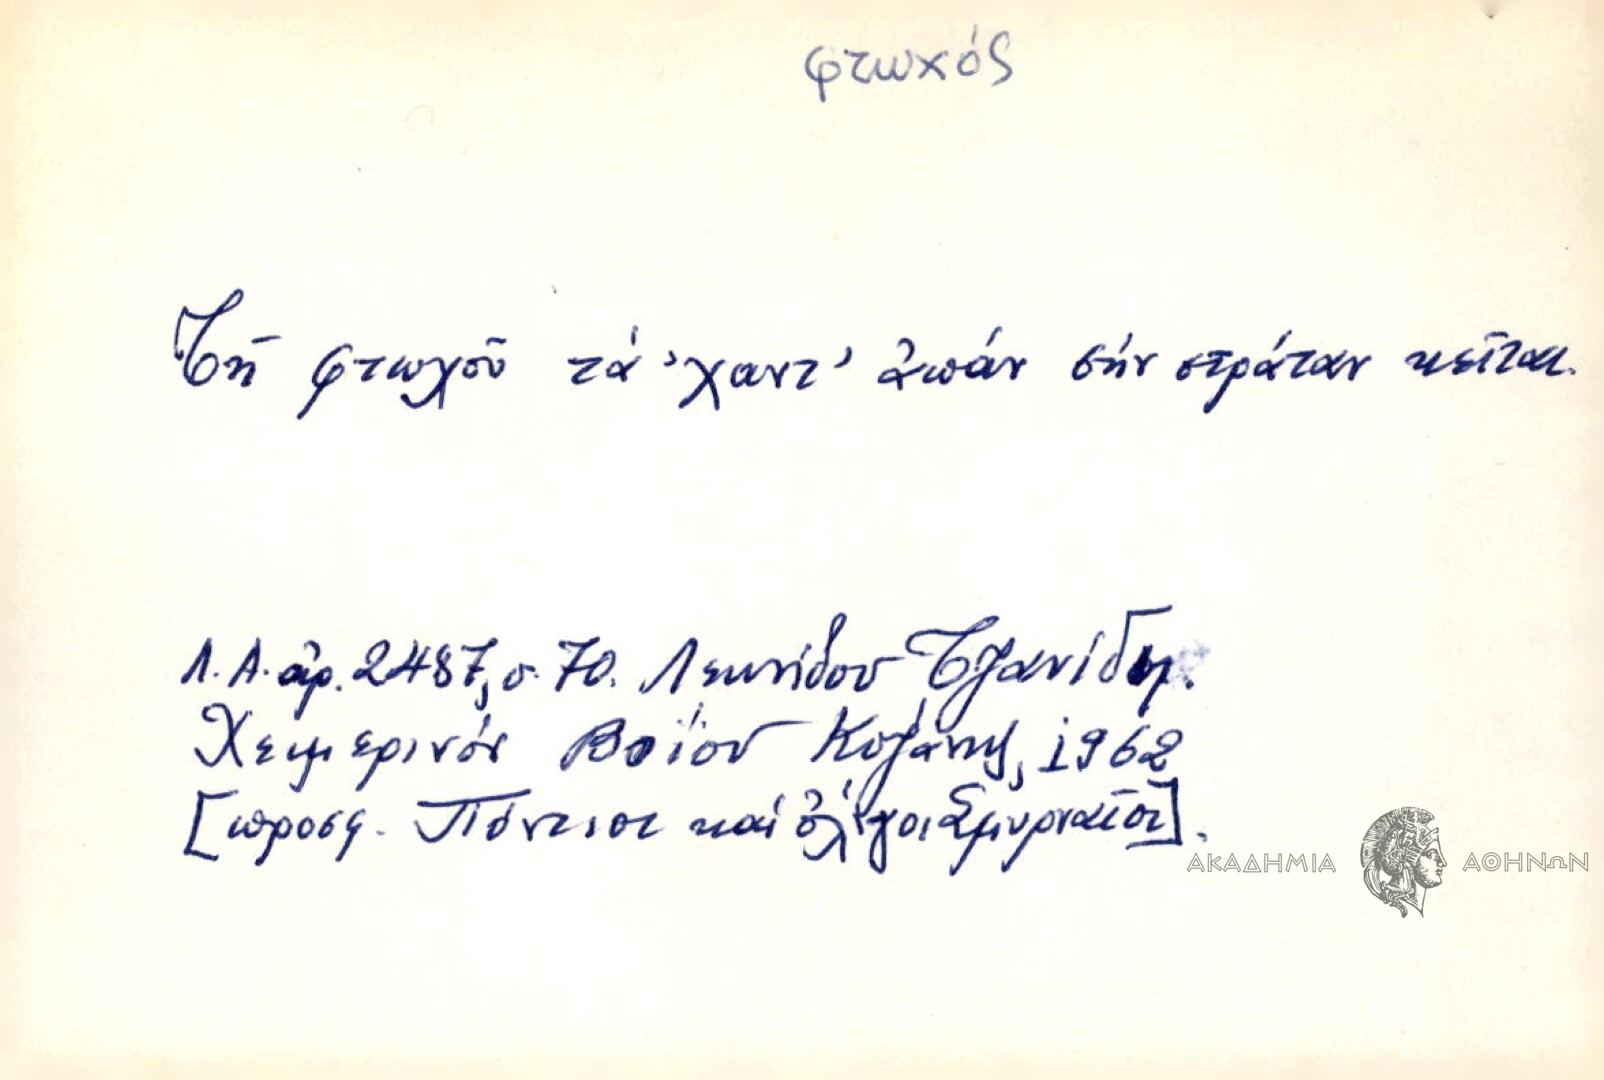 φτωχός
Τῆ φτωχοῦ τά 'χαντ' ἀπάν σήν στράταν κεῖται.
Λ.Α. ἀρ. 2487, σ. 70. Λεωνίδου Τζανίδη.
Χειμερινόν Βοΐου Κοζάνης, 1962
[προσφ. Πόντιοι καί ὀλίγοι Σμυρναῖοι].
ΑΚΑΔΗΜΙΑ ΑΘΗΝΩΝ